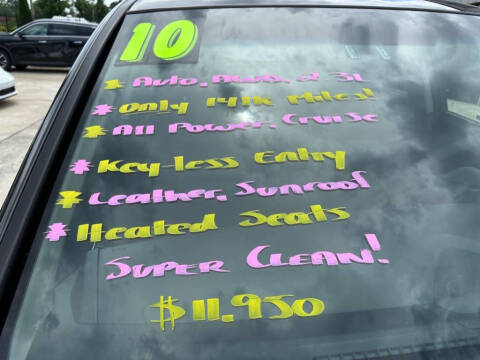 10
* Auto, AWD, 3.2L
* Only 141K Miles!
* All Power, Cruise
* Key-less Entry
* Leather, Sunroof
* Heated Seats
Super Clean!
$11,950